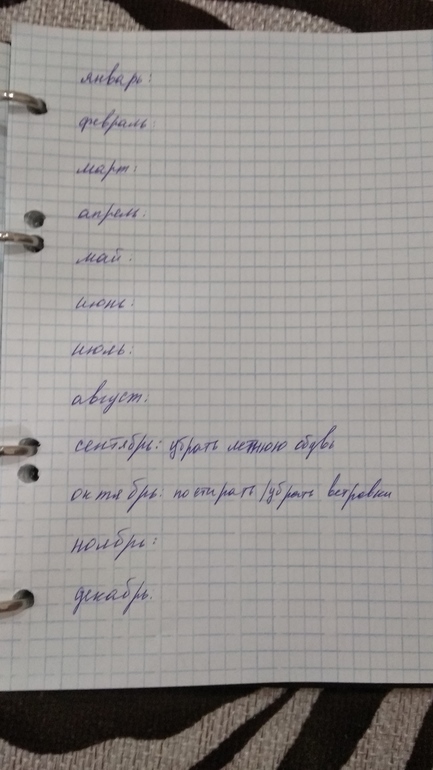 январь:
февраль:
март:
апрель:
май:
июнь:
июль:
август:
сентябрь: убрать летнюю обувь
октябрь: постирать/убрать ветровки
ноябрь:
декабрь: